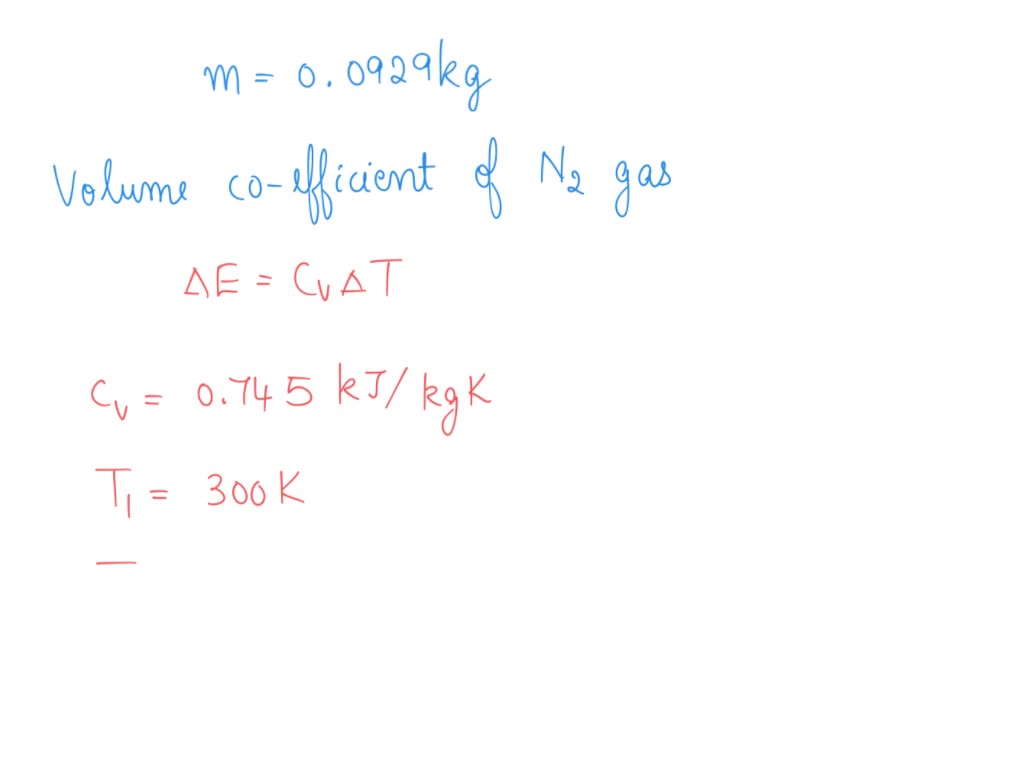 m = 0.0929kg
Volume co-efficient of N₂ gas
ΔE = CᵥΔT
Cᵥ = 0.745 kJ/kgK
T₁ = 300K